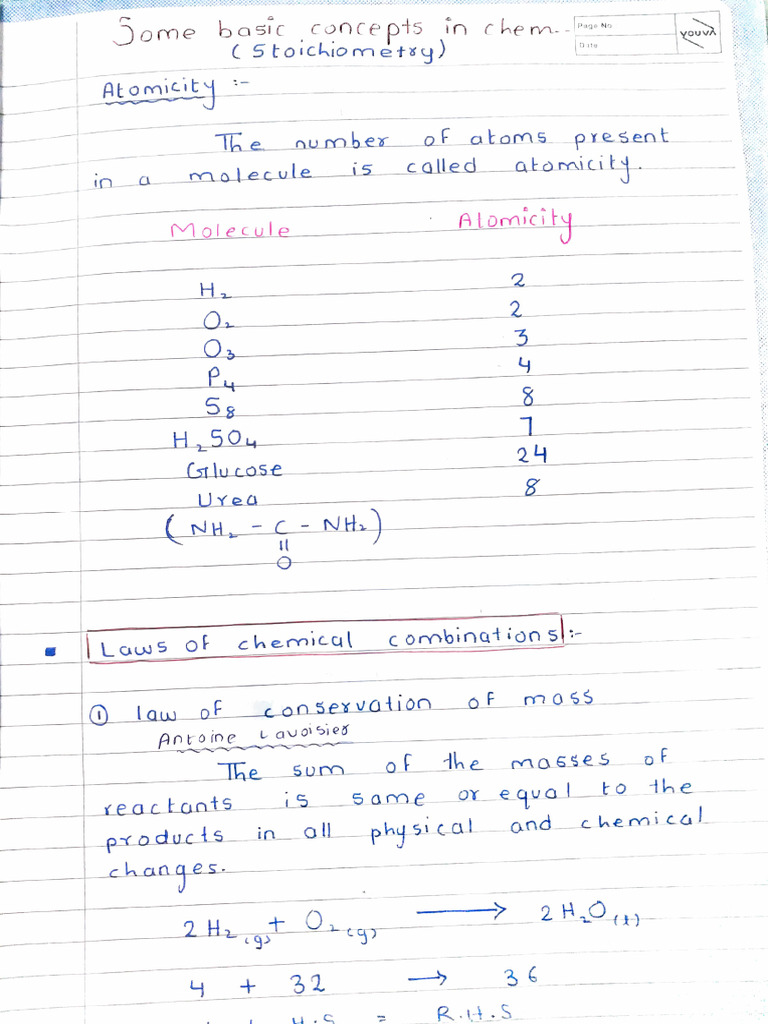 Some basic concepts in chem..
Page No
Date
YOUVA
(Stoichiometry)
Atomicity :-
The number of atoms present
in a molecule is called atomicity.
Molecule Atomicity
H₂ 2
O₂ 2
O₃ 3
P₄ 4
S₈ 8
H₂SO₄ 7
Glucose 24
Urea 8
(NH₂ - C - NH₂)
||
O
Laws of chemical combinations :-
① law of conservation of mass
Antoine Lavoisier
The sum of the masses of
reactants is same or equal to the
products in all physical and chemical
changes.
2H₂(g) + O₂(g) ⟶ 2H₂O(l)
4 + 32 → 36
L.H.S = R.H.S